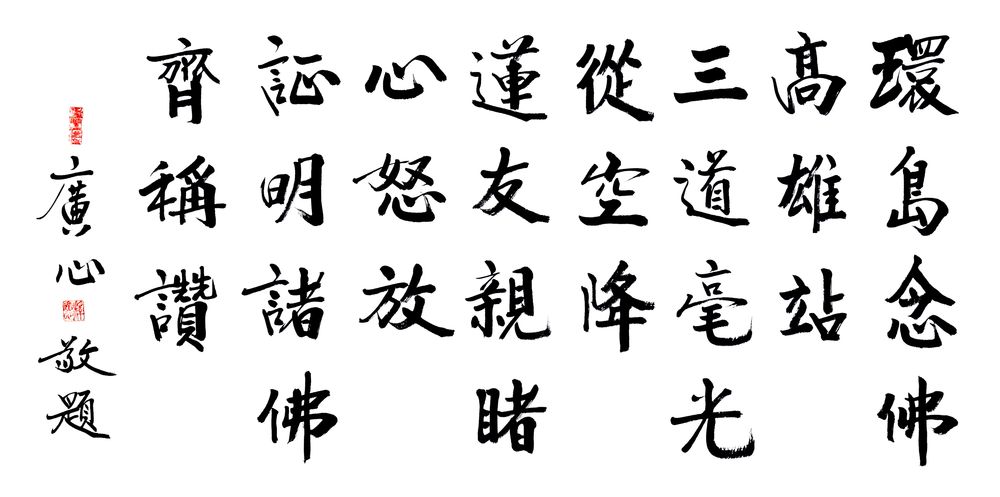 環島念佛
高雄站
三道毫光
從空降
蓮友親睹
心怒放
証明諸佛
齊稱讚
廣心敬題